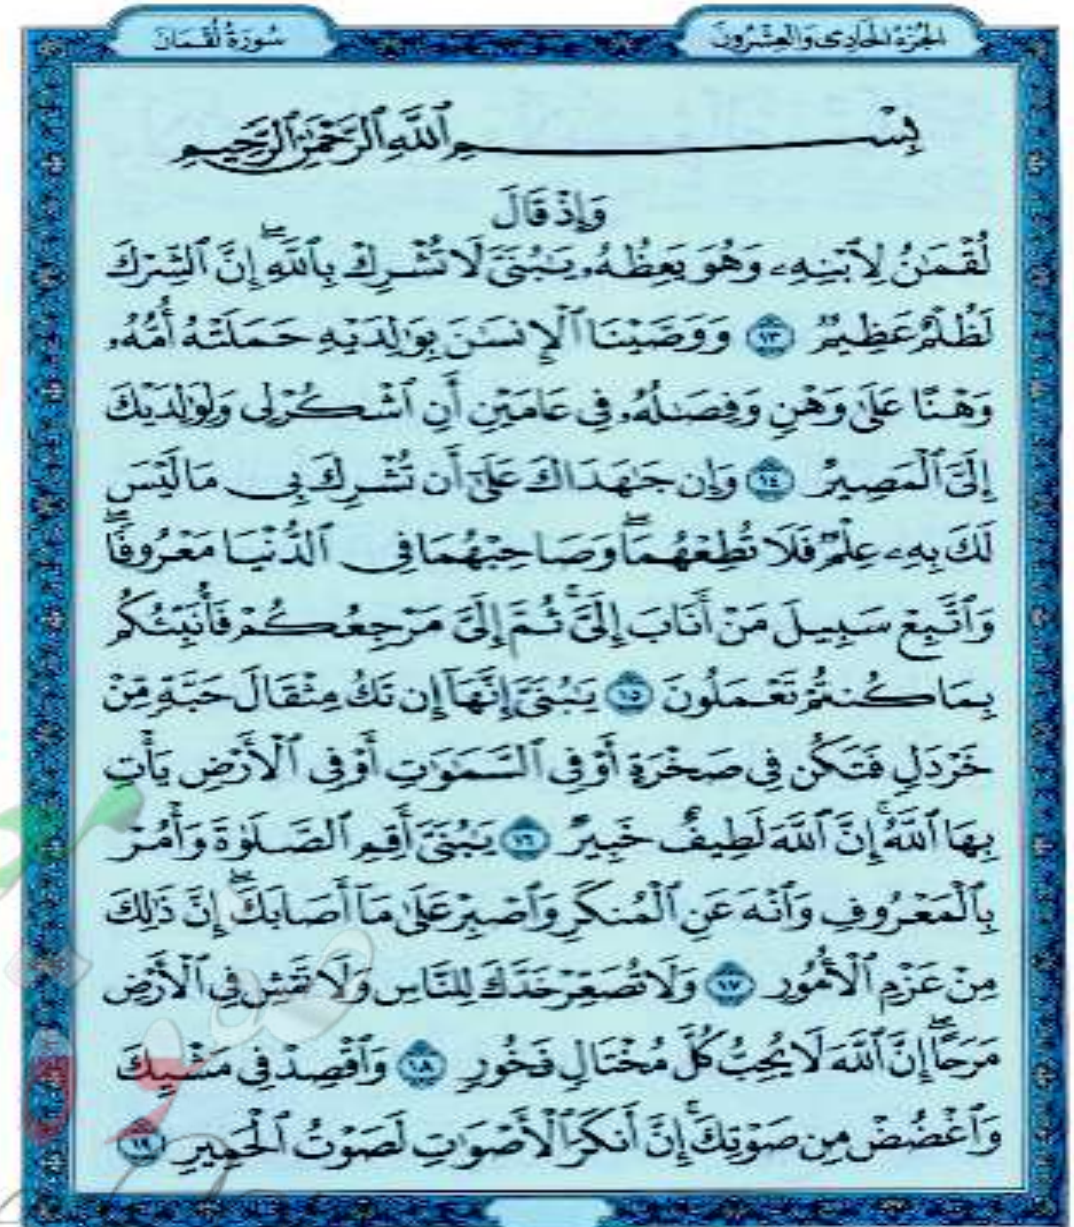 الجزء الحادي والعشرون
سورة لقمان
بِسْمِ ٱللَّهِ ٱلرَّحْمَٰنِ ٱلرَّحِيمِ
وَإِذْ قَالَ
لُقْمَٰنُ لِٱبْنِهِۦ وَهُوَ يَعِظُهُۥ يَٰبُنَىَّ لَا تُشْرِكْ بِٱللَّهِ ۖ إِنَّ ٱلشِّرْكَ
لَظُلْمٌ عَظِيمٌ ١٣ وَوَصَّيْنَا ٱلْإِنسَٰنَ بِوَٰلِدَيْهِ حَمَلَتْهُ أُمُّهُۥ
وَهْنًا عَلَىٰ وَهْنٍ وَفِصَٰلُهُۥ فِى عَامَيْنِ أَنِ ٱشْكُرْ لِى وَلِوَٰلِدَيْكَ
إِلَىَّ ٱلْمَصِيرُ ١٤ وَإِن جَٰهَدَاكَ عَلَىٰٓ أَن تُشْرِكَ بِى مَا لَيْسَ
لَكَ بِهِۦ عِلْمٌ فَلَا تُطِعْهُمَا ۖ وَصَاحِبْهُمَا فِى ٱلدُّنْيَا مَعْرُوفًا ۖ
وَٱتَّبِعْ سَبِيلَ مَنْ أَنَابَ إِلَىَّ ۚ ثُمَّ إِلَىَّ مَرْجِعُكُمْ فَأُنَبِّئُكُم
بِمَا كُنتُمْ تَعْمَلُونَ ١٥ يَٰبُنَىَّ إِنَّهَآ إِن تَكُ مِثْقَالَ حَبَّةٍ مِّنْ
خَرْدَلٍ فَتَكُن فِى صَخْرَةٍ أَوْ فِى ٱلسَّمَٰوَٰتِ أَوْ فِى ٱلْأَرْضِ يَأْتِ
بِهَا ٱللَّهُ ۚ إِنَّ ٱللَّهَ لَطِيفٌ خَبِيرٌ ١٦ يَٰبُنَىَّ أَقِمِ ٱلصَّلَوٰةَ وَأْمُرْ
بِٱلْمَعْرُوفِ وَٱنْهَ عَنِ ٱلْمُنكَرِ وَٱصْبِرْ عَلَىٰ مَآ أَصَابَكَ ۖ إِنَّ ذَٰلِكَ
مِنْ عَزْمِ ٱلْأُمُورِ ١٧ وَلَا تُصَعِّرْ خَدَّكَ لِلنَّاسِ وَلَا تَمْشِ فِى ٱلْأَرْضِ
مَرَحًا ۖ إِنَّ ٱللَّهَ لَا يُحِبُّ كُلَّ مُخْتَالٍ فَخُورٍ ١٨ وَٱقْصِدْ فِى مَشْيِكَ
وَٱغْضُضْ مِن صَوْتِكَ ۚ إِنَّ أَنكَرَ ٱلْأَصْوَٰتِ لَصَوْتُ ٱلْحَمِيرِ ١٩